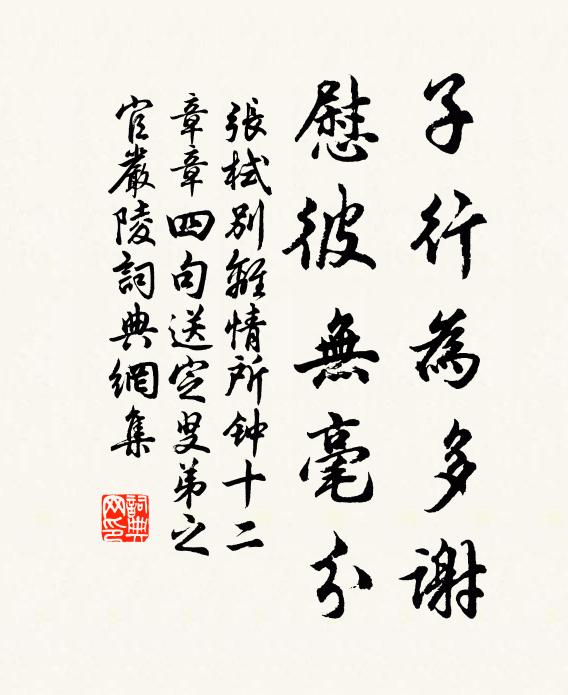 子行為多謝
慰彼無毫分
張栻別離情所鍾十二
章章四句送定叟弟之
官嚴陵詞典網集
詞典網印